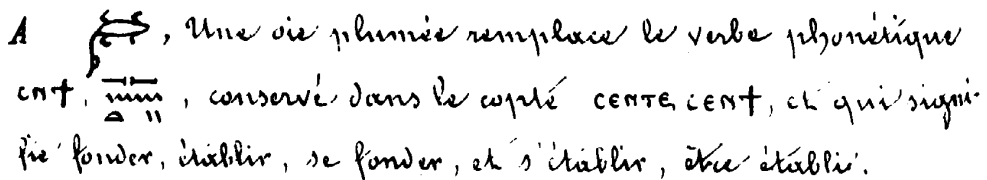 A 𓅾, Une oie plumée remplace le verbe phonétique
ⲥⲛϯ, 𓊃𓈖𓏏𓏭, conservé dans le copte ⲥⲉⲛⲧⲉ, ⲥⲉⲛϯ, et qui signi-
fie fonder, établir, se fonder, et s'établir, être établi.